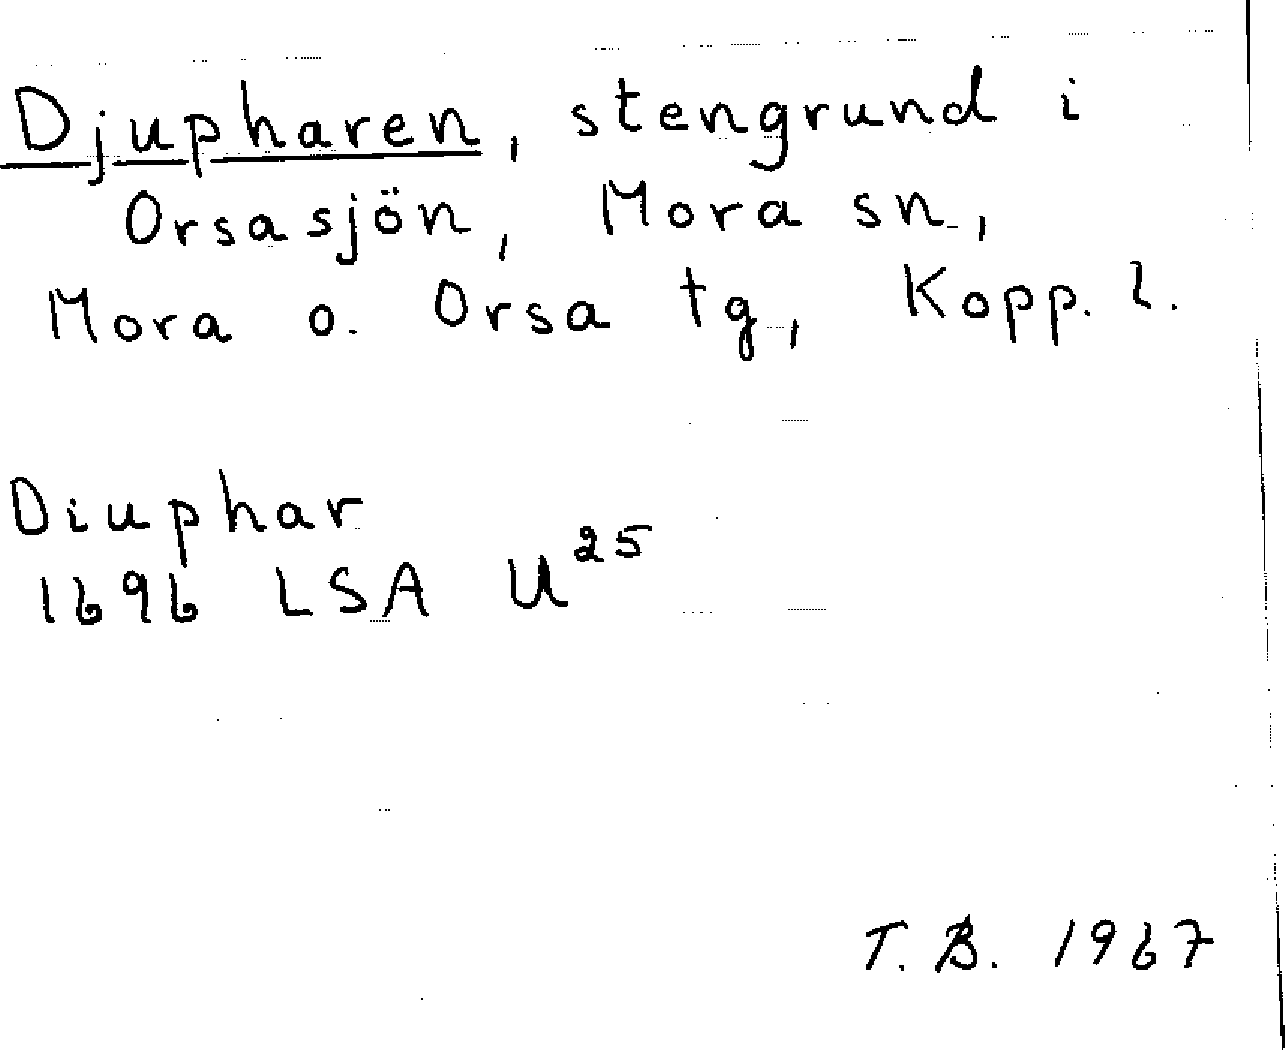 Djupharen, stengrund i
Orsasjön, Mora sn.,
Mora o. Orsa tg, Kopp. l.
Diuphar
1696 LSA U25
T. B. 1967